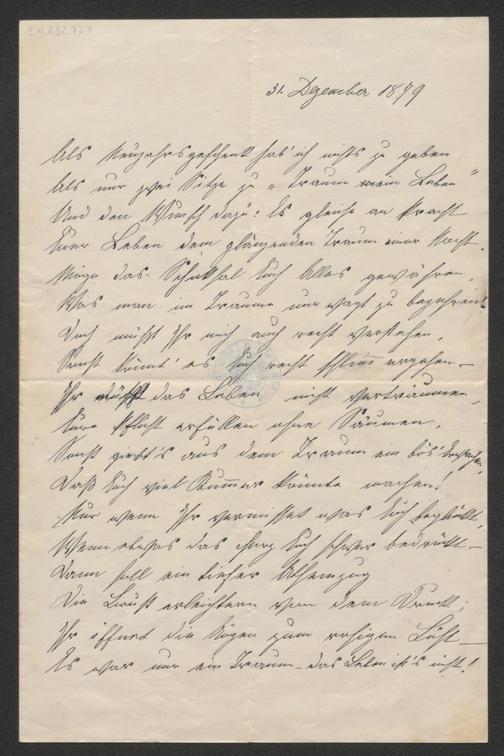 N.232.727
31. Dezember 1879
Als Neujahrsgeschenk hab' ich nichts zu geben
Als nur zwei Sitze zu „Traum ein Leben"
Und den Wunsch dazu: Es gleiche an Pracht
Euer Leben dem glänzenden Traum einer Nacht.
Möge das Schicksal Euch Alles gewähren,
Was man im Traume nur wagt zu begehren!
Doch müßt Ihr mich auch recht verstehen,
Sonst könnt' es Euch recht schlimm ergehen –
Ihr müßt das Leben nicht verträumen,
Eure Pflicht erfüllen ohne Säumen,
Sonst giebt's aus dem Traum ein bös' Erwachen,
Daß Euch viel Kummer könnte machen!
Nur wenn Ihr vermisset was Euch beglückt,
Wenn etwas das Herz Euch schwer bedrückt –
Dann soll ein tiefer Athemzug
Die Brust erleichtern von dem Druck;
Ihr öffnet die Augen zum rosigen Licht –
Es war nur ein Traum – das Leben ist's nicht!